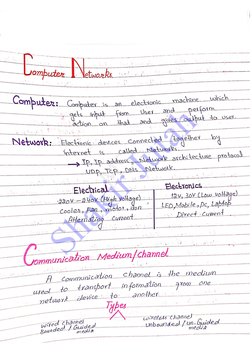 Computer Networks
Computer: Computer is an electronic machine which
gets input from user and perform
action on that and gives output to user.
Network: Electronic devices connected together by
internet is called Network.
→ Ip, Ip address, Network architecture protocol
UDP, Tcp, DNS Network
Electrical Electronics
220v - 240v (High voltage) 12v, 30v (Low voltage)
Cooler, Fan, motor, iron LED, Mobile, Pc, Laptop
Alternating Current Direct Current
Communication Medium/channel
A communication channel is the medium
used to transport information from one
network device to another
Types
wired channel wireless channel
Bounded/Guided unbounded/un-Guided
media media
Shakir Jinah